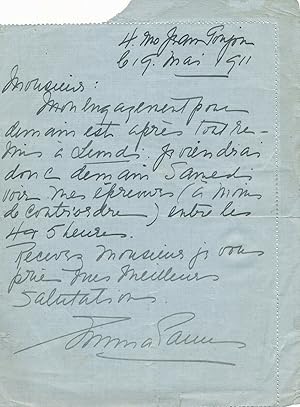 4. rue Jean Goujon
le 19 Mai 911
Monsieur:
Mon engagement pour
demain est après tout re-
mis à Lundi. Je viendrai
donc demain Samedi
voir mes épreuves (à moins
de contrordre) entre les
4 & 5 heures.
Recevez Monsieur je vous
prie mes meilleurs
Salutations.
Emma Eames